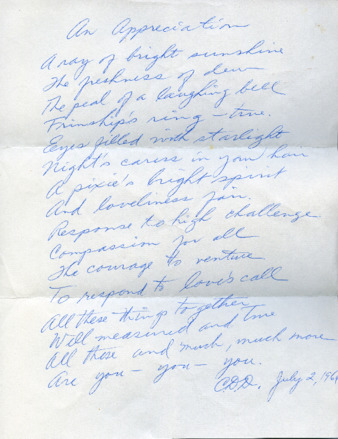 An Appreciation
A ray of bright sunshine
The freshness of dew
The peal of a laughing bell
Frinship's ring – true.
Eyes filled with starlight
Night's caress in your hair
A pixie's bright spirit
And loveliness fair.
Response to high challenge
Compassion for all
The courage to venture
To respond to love's call
All these things together
Well measured and true
All these and much, much more
Are you – you – you.
C.D.D. July 2, 196